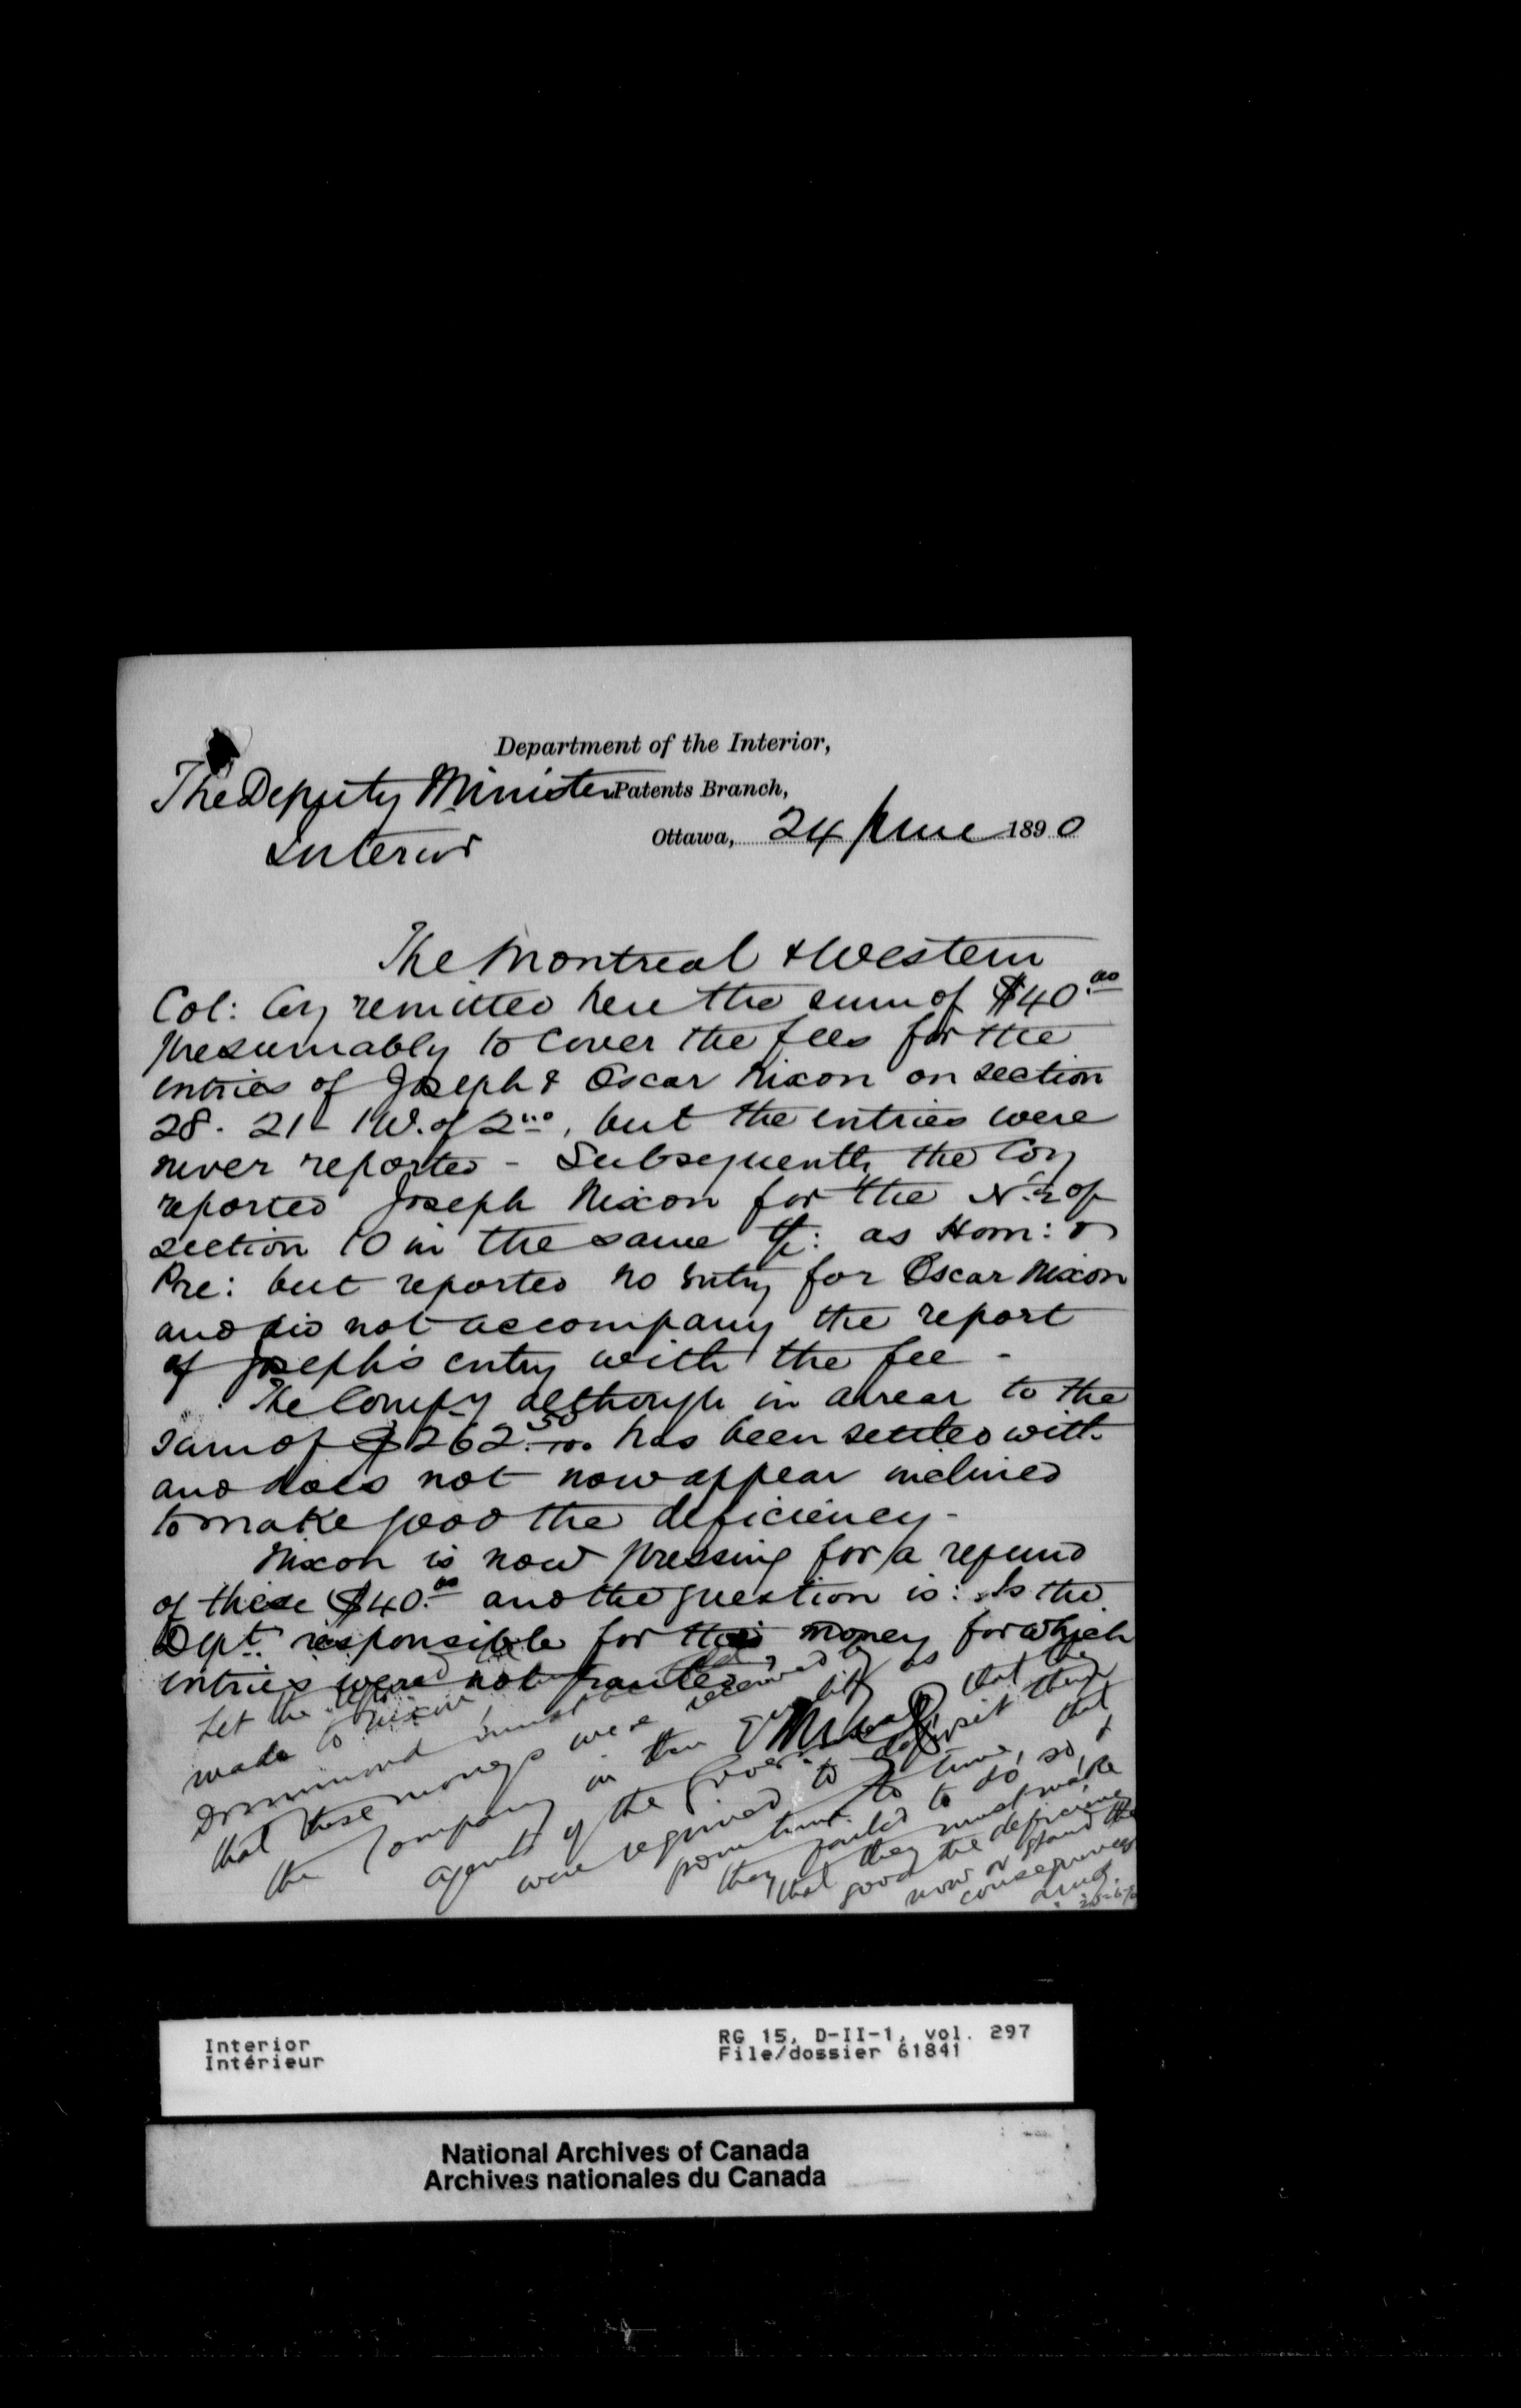 Department of the Interior,
The Deputy Minister Patents Branch,
Interior
Ottawa, 24 June 1890
The Montreal & Western
Col: Coy remitted here the sum of $40.00
presumably to cover the fees for the
entries of Joseph & Oscar Nixon on section
28. 21- 1 W. of 2nd, but the entries were
never reported - Subsequently the Coy
reported Joseph Nixon for the N. ½ of
section 10 in the same Tp: as Hom: &
Pre: but reported no entry for Oscar Nixon
and did not accompany the report
of Joseph's entry with the fee -
The Compy although in arrear to the
sum of $262.50/100 has been settled with
and does not now appear inclined
to make good the deficiency -
Nixon is now pressing for a refund
of these $40.00 and the question is: Is the
Dept. responsible for this money for which
entries were not granted?
Let the refund be
made to Nixon,
Drummond must
that these moneys were received by
the Company in their quality as
agents of the Government that they
were required to deposit them
from time to time, that
they failed to do so, &
that they must make
good the deficiency
now or stand the
consequences
Interior
Intérieur
RG 15, D-II-1, vol. 297
File/dossier 61841
National Archives of Canada
Archives nationales du Canada